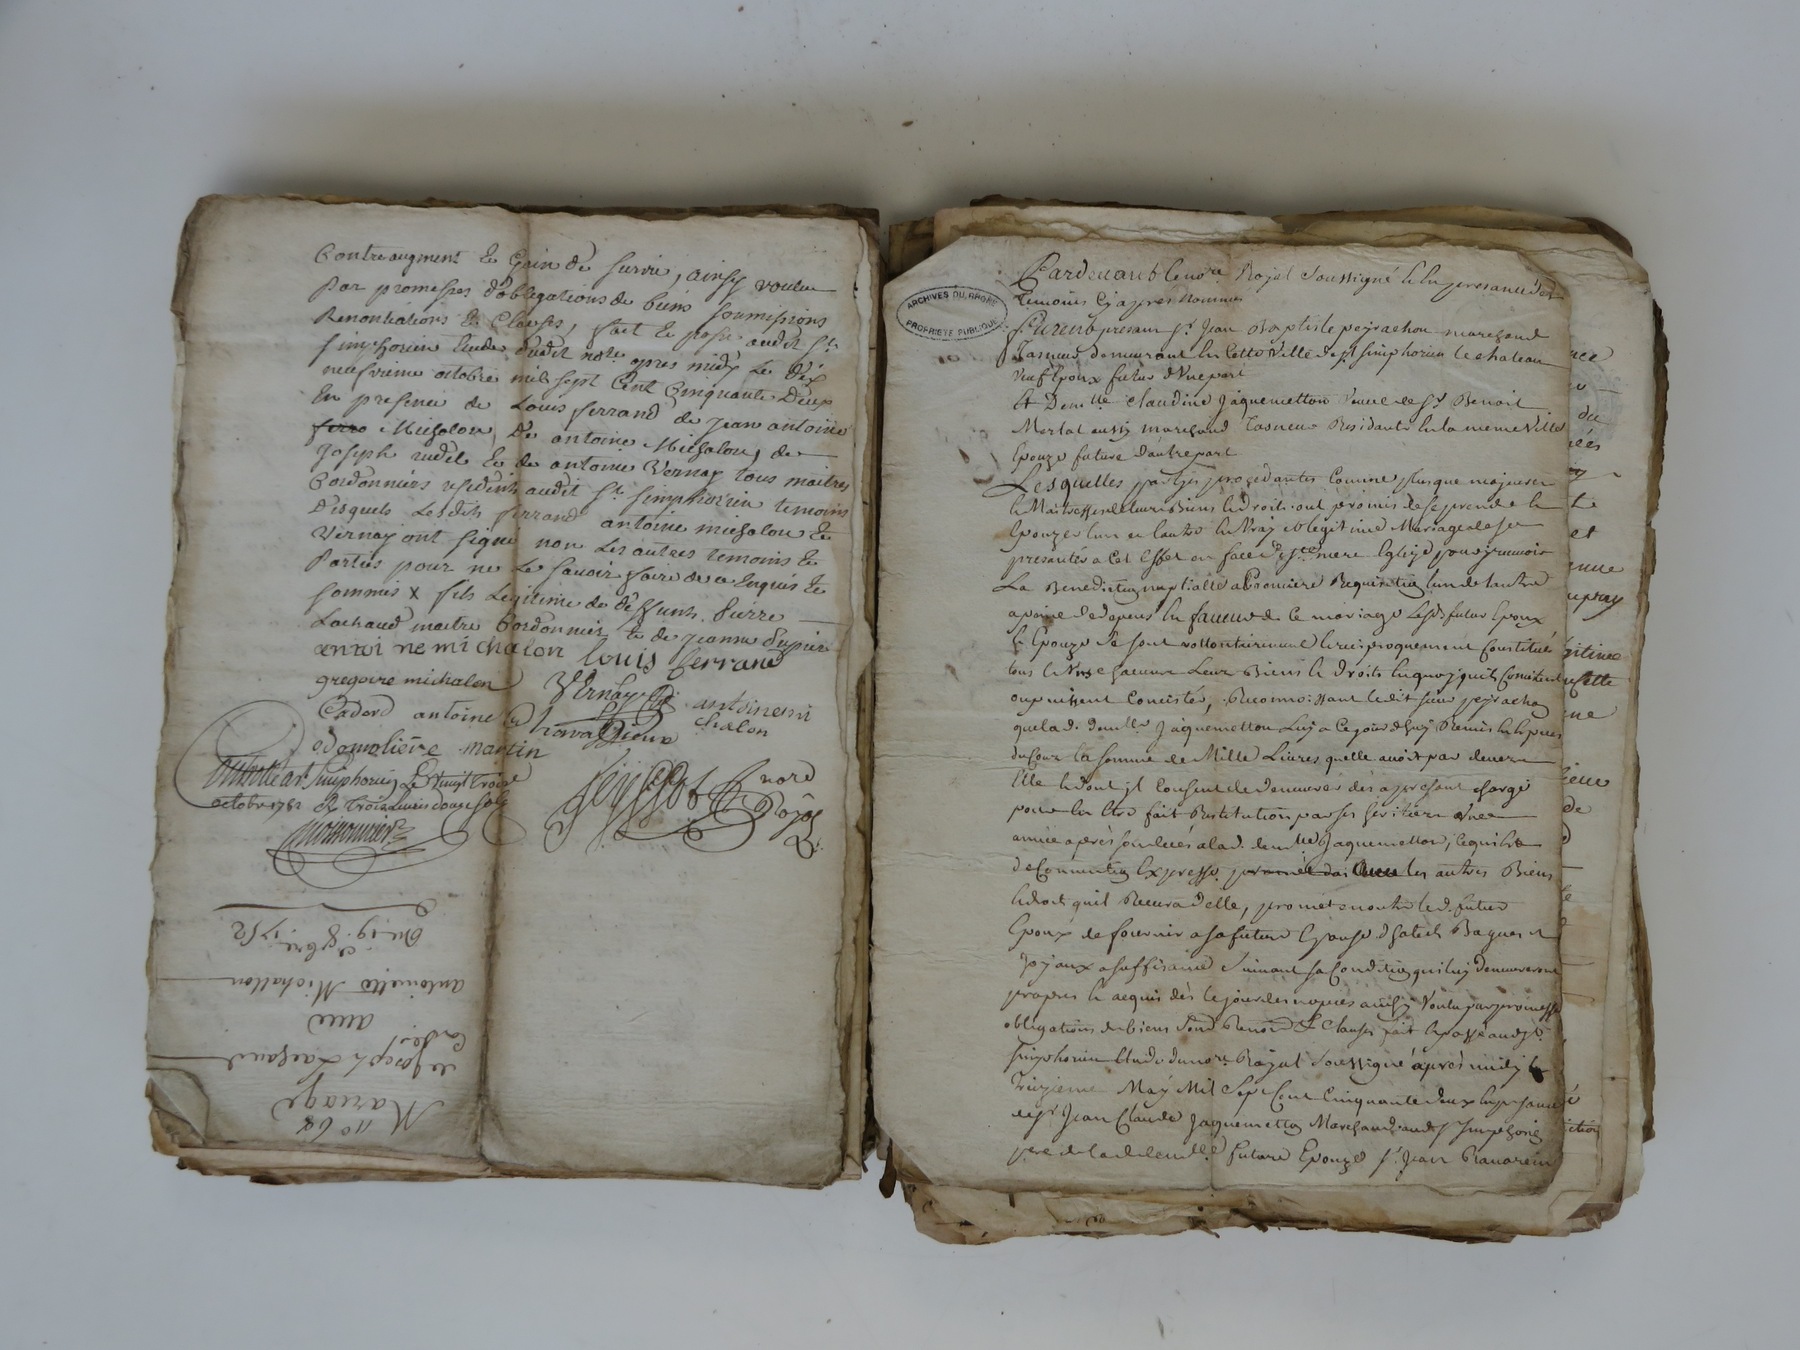 Contreaugment et Gain de survie, ainsy voulu
Par promesses d'oblegations de biens soumissions
Renontiations et Clauses, fait et passé audit St
simphorien Etude dudit nore apres midy Le dix
neufvieme octobre mil sept Cent Cinquante Deux
En presence de Louis ferrand de jean antoine
ferro Michalon, De antoine Michalon, de
Joseph et de antoine Vernay tous maitres
Cordonniers residents audit St simphorien temoins
Desquels Lesdits ferrand antoine michalon et
Vernay ont signé non Les autres temoins et
Parties pour ne Le savoir faire de ce Enquis et
sommés X fils Legitime de deffunts pierre
Lachaud maitre Cordonnier et de jeanne Dupuis
antoi ne mi chalon louis ferrand
gregoire michalon Vernay antoinemi
chalon
antoine
martin
Controllé a St Simphorien Le Vingt trois
octobre 1752 R trois Livres douze sols
nore
Royal
no 62
Mariage
de Joseph Lachaud
Cad.
avec
antoinette Michallon
Du 19. 8bre. 1752
ARCHIVES DU RHONE
PROPRIETE PUBLIQUE
Pardevant le nore Royal soussigné et En presance des
temoins Cy apres nommés
Furent presens sr Jean Baptiste peyrachon marchand
Tasneur demeurant En Cette Ville de st simphorien le chateau
veuf Epoux futur d'Une part
Et Demlle Claudine Jaquemetton veuve de sr Benoit
Merlat aussy marchand Tasneur Residante En la meme Ville
Epouze future D'autre part
Lesquelles parties procedantes Comme plusque majeures
et Maitresses de leurs Biens et droits ont promis de se prendre et
Epouzer lun et lautre En Vray et legitime Mariage de se
presenter a Cet Effet en face de ste mere Eglize pour y recevoir
La Benediction nuptialle a la premiere Requisition lun de lautre
a peine de depens En faveur de ce mariage Lesd. futur Epoux
et Epouze se sont vollontairement et reciproquement Constitué
tous et Uns chacuns Leurs Biens et Droits En quoy quils Consistent
ou puissent Consister, Reconnoissant ledit sieur peyrachon
que lad. demlle Jaquemetton Luy a Cejour d'huy Remis En Especes
du Cour la somme de Mille Livres quelle avoit par devers
Elle et dont jl Consent de demeurer dès a present chargé
pour En Etre fait Restitution par ses heritiers Une
année après son decés a lad. demlle Jaquemetton,
de Convention Expresse les autres Biens
et droits quil Recevra d'elle, promet en outre led. futur
Epoux de fournir a sa future Epouse d'habits Bagues et
Joyaux a suffisance suivant sa Condition, qui luy demeureront
propres et acquis dès le jour des nopces ainsy Voulu par promesses
obligations de biens soum. Renon. et Clauses fait et passé aud. st
simphorien Etude du nore Royal soussigné après midy le
Treizieme May Mil Sept Cent Cinquante deux En presance
de sr Jean Claude Jaquemetton Marchand aud. st simphorien
pere de lad. demlle future Epouze sr Jean